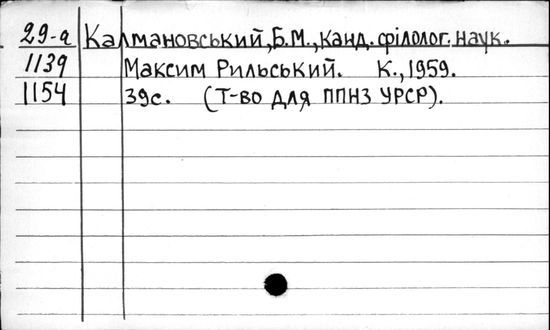 29-а Калмановський,Б.М.,канд.філолог.наук.
1139 Максим Рильський. К.,1959.
1154 39с. (Т-во для ППНЗ УРСР).